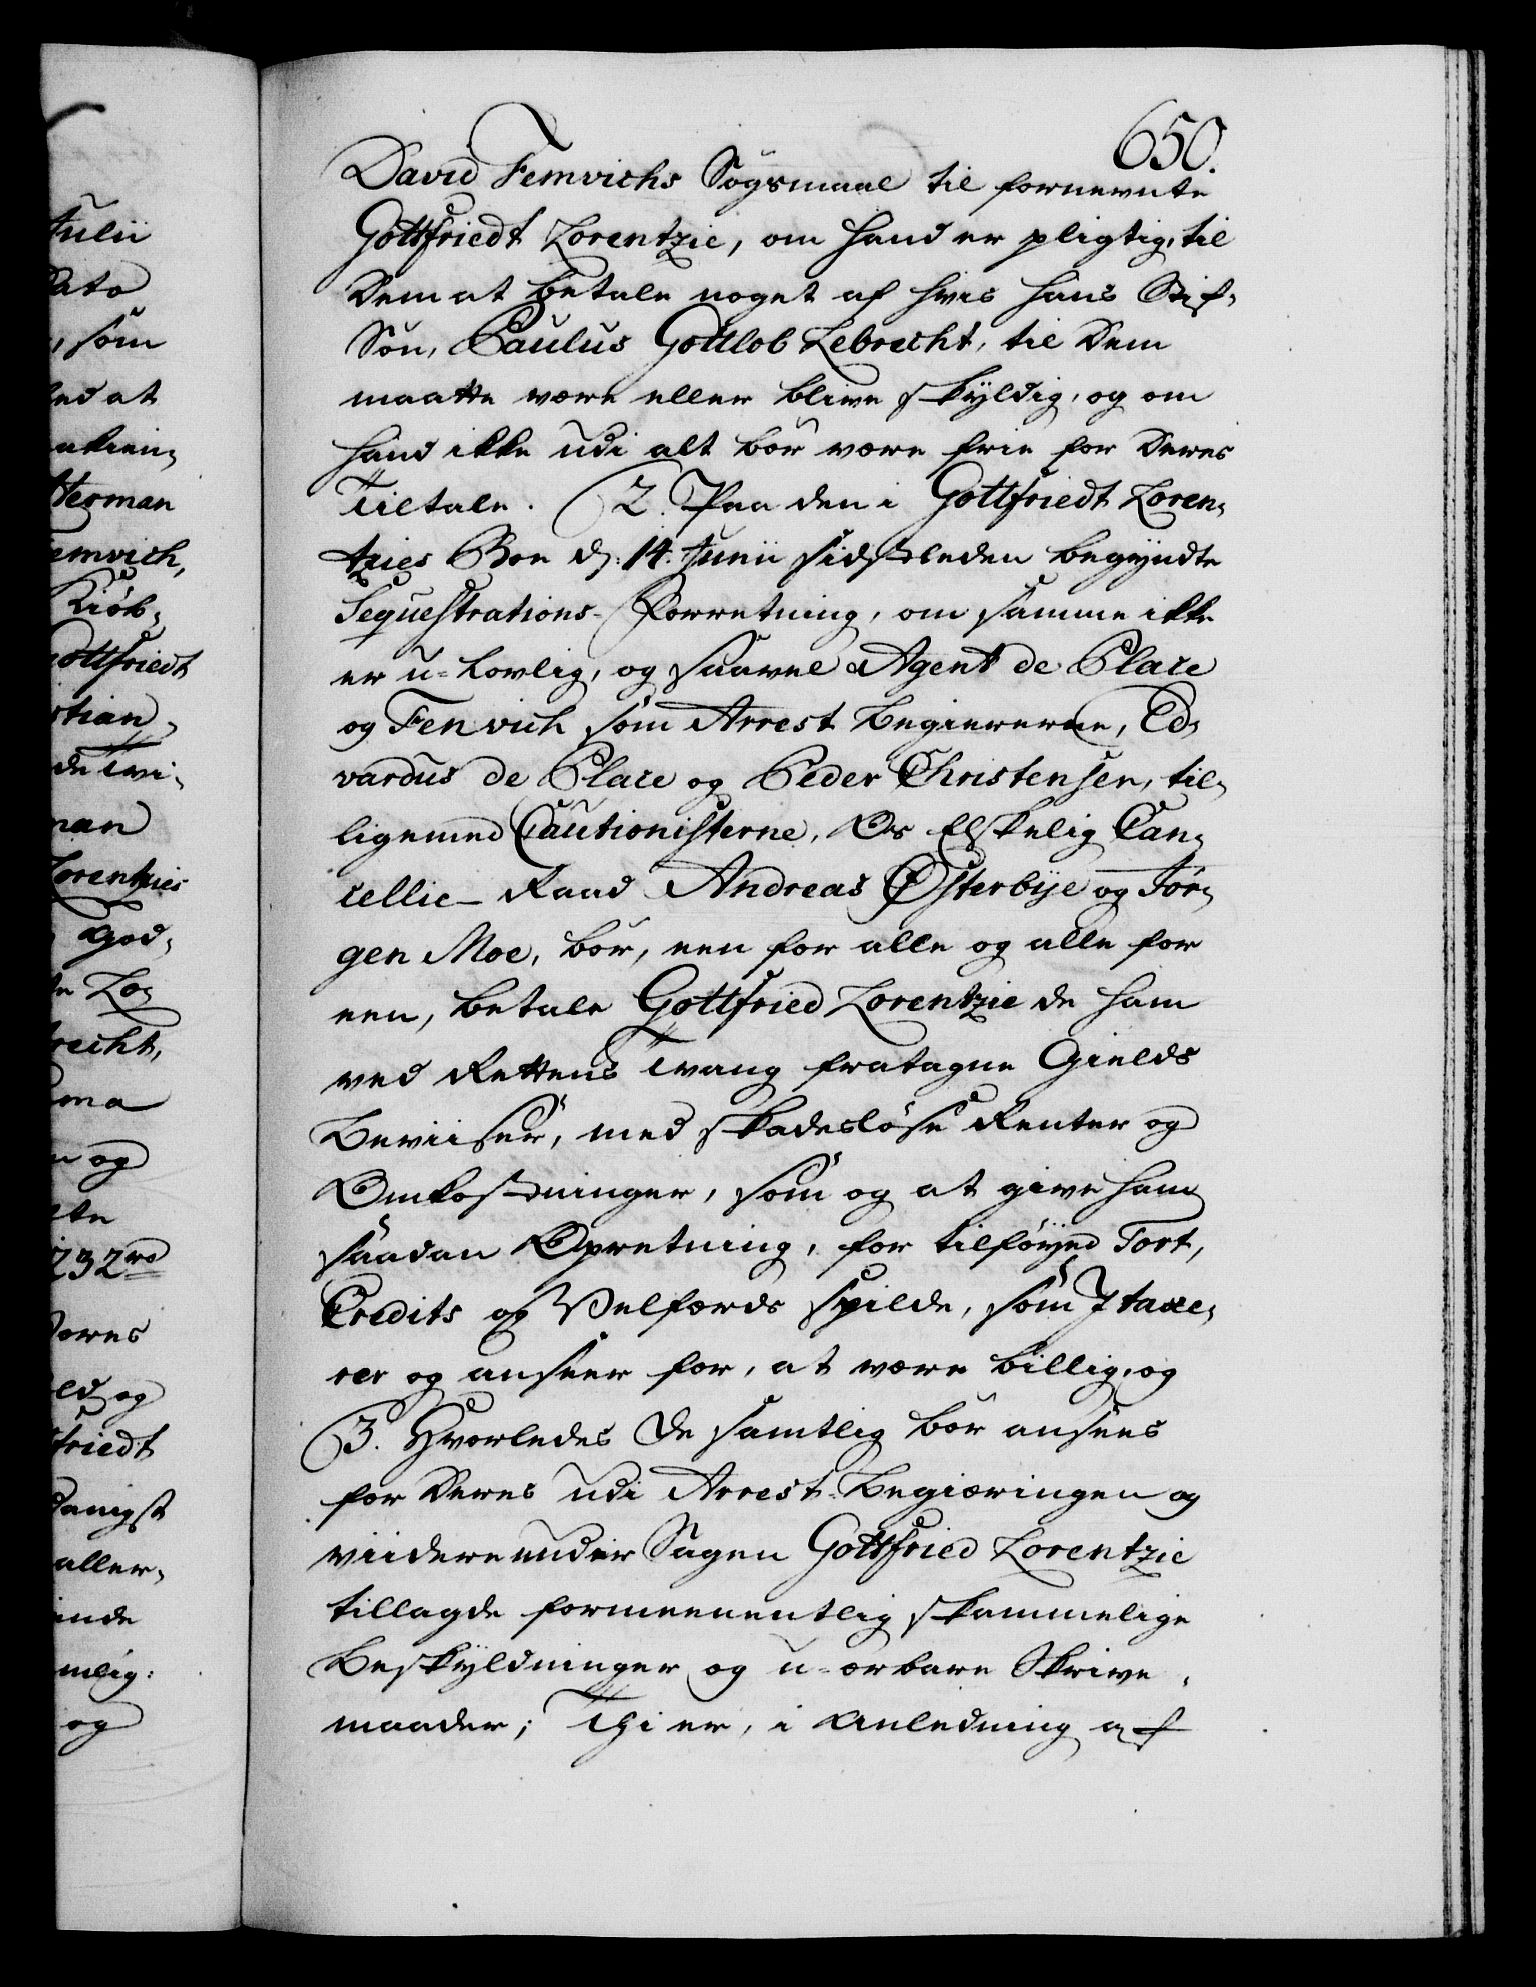 650.
David Femvichs Søgsmaal til fornevnte
Gottfriedt Lorentzie, om hand er pligtig, til
Dem at betale noget af hvis hans Stif-
Søn, Paulus Gottlob Lebrecht, til Dem
maatte være eller blive skÿldig, og om
hand ikke udi alt bør være frie for Deres
Tiltale. 2. Paa den i Gottfriedt Loren-
tzies Boe d: 14. Junii sidstleden begyndte
Sequestrations-Forretning, om samme ikke
er u-lovlig, og saavel Agent de Place
og Fenvich som Arrest Begiererne, Ed-
vardus de Place og Peder Christensen, til-
ligemed Cautionisterne, Os Elskelig Can-
cellie-Raad Andreas Østerbÿe og Jør-
gen Moe, bør, een for alle og alle for
een, betale Gottfried Lorentzie de ham
ved Rettens Tvang fratagne Gields
Beviiser, med skadesløse Renter og
Omkostninger, som og at give ham
saadan Opretning, for tilføyed Tort,
Credits og Velfærds spilde, som I taxe-
rer og anseer for, at være billig, og
3. Hvorledes De samtlig bør ansees
for Deres udi Arrest-Begiæringen og
viidere under Sagen Gottfried Lorentzie
tillagde formeenentlig skammelige
Beskÿldninger og u-ærbare Skrive-
maader; Thi er, i Anledning af
Julii
Dato
, som
ed at
Herman
emvich,
Kiøb-
ottfriedt
stian
de Tvi-
man
Lorentzies
God-
Lo-
recht,
og
232re
Deres
og
friedt
danigst
aller-
inde
mlig:
og